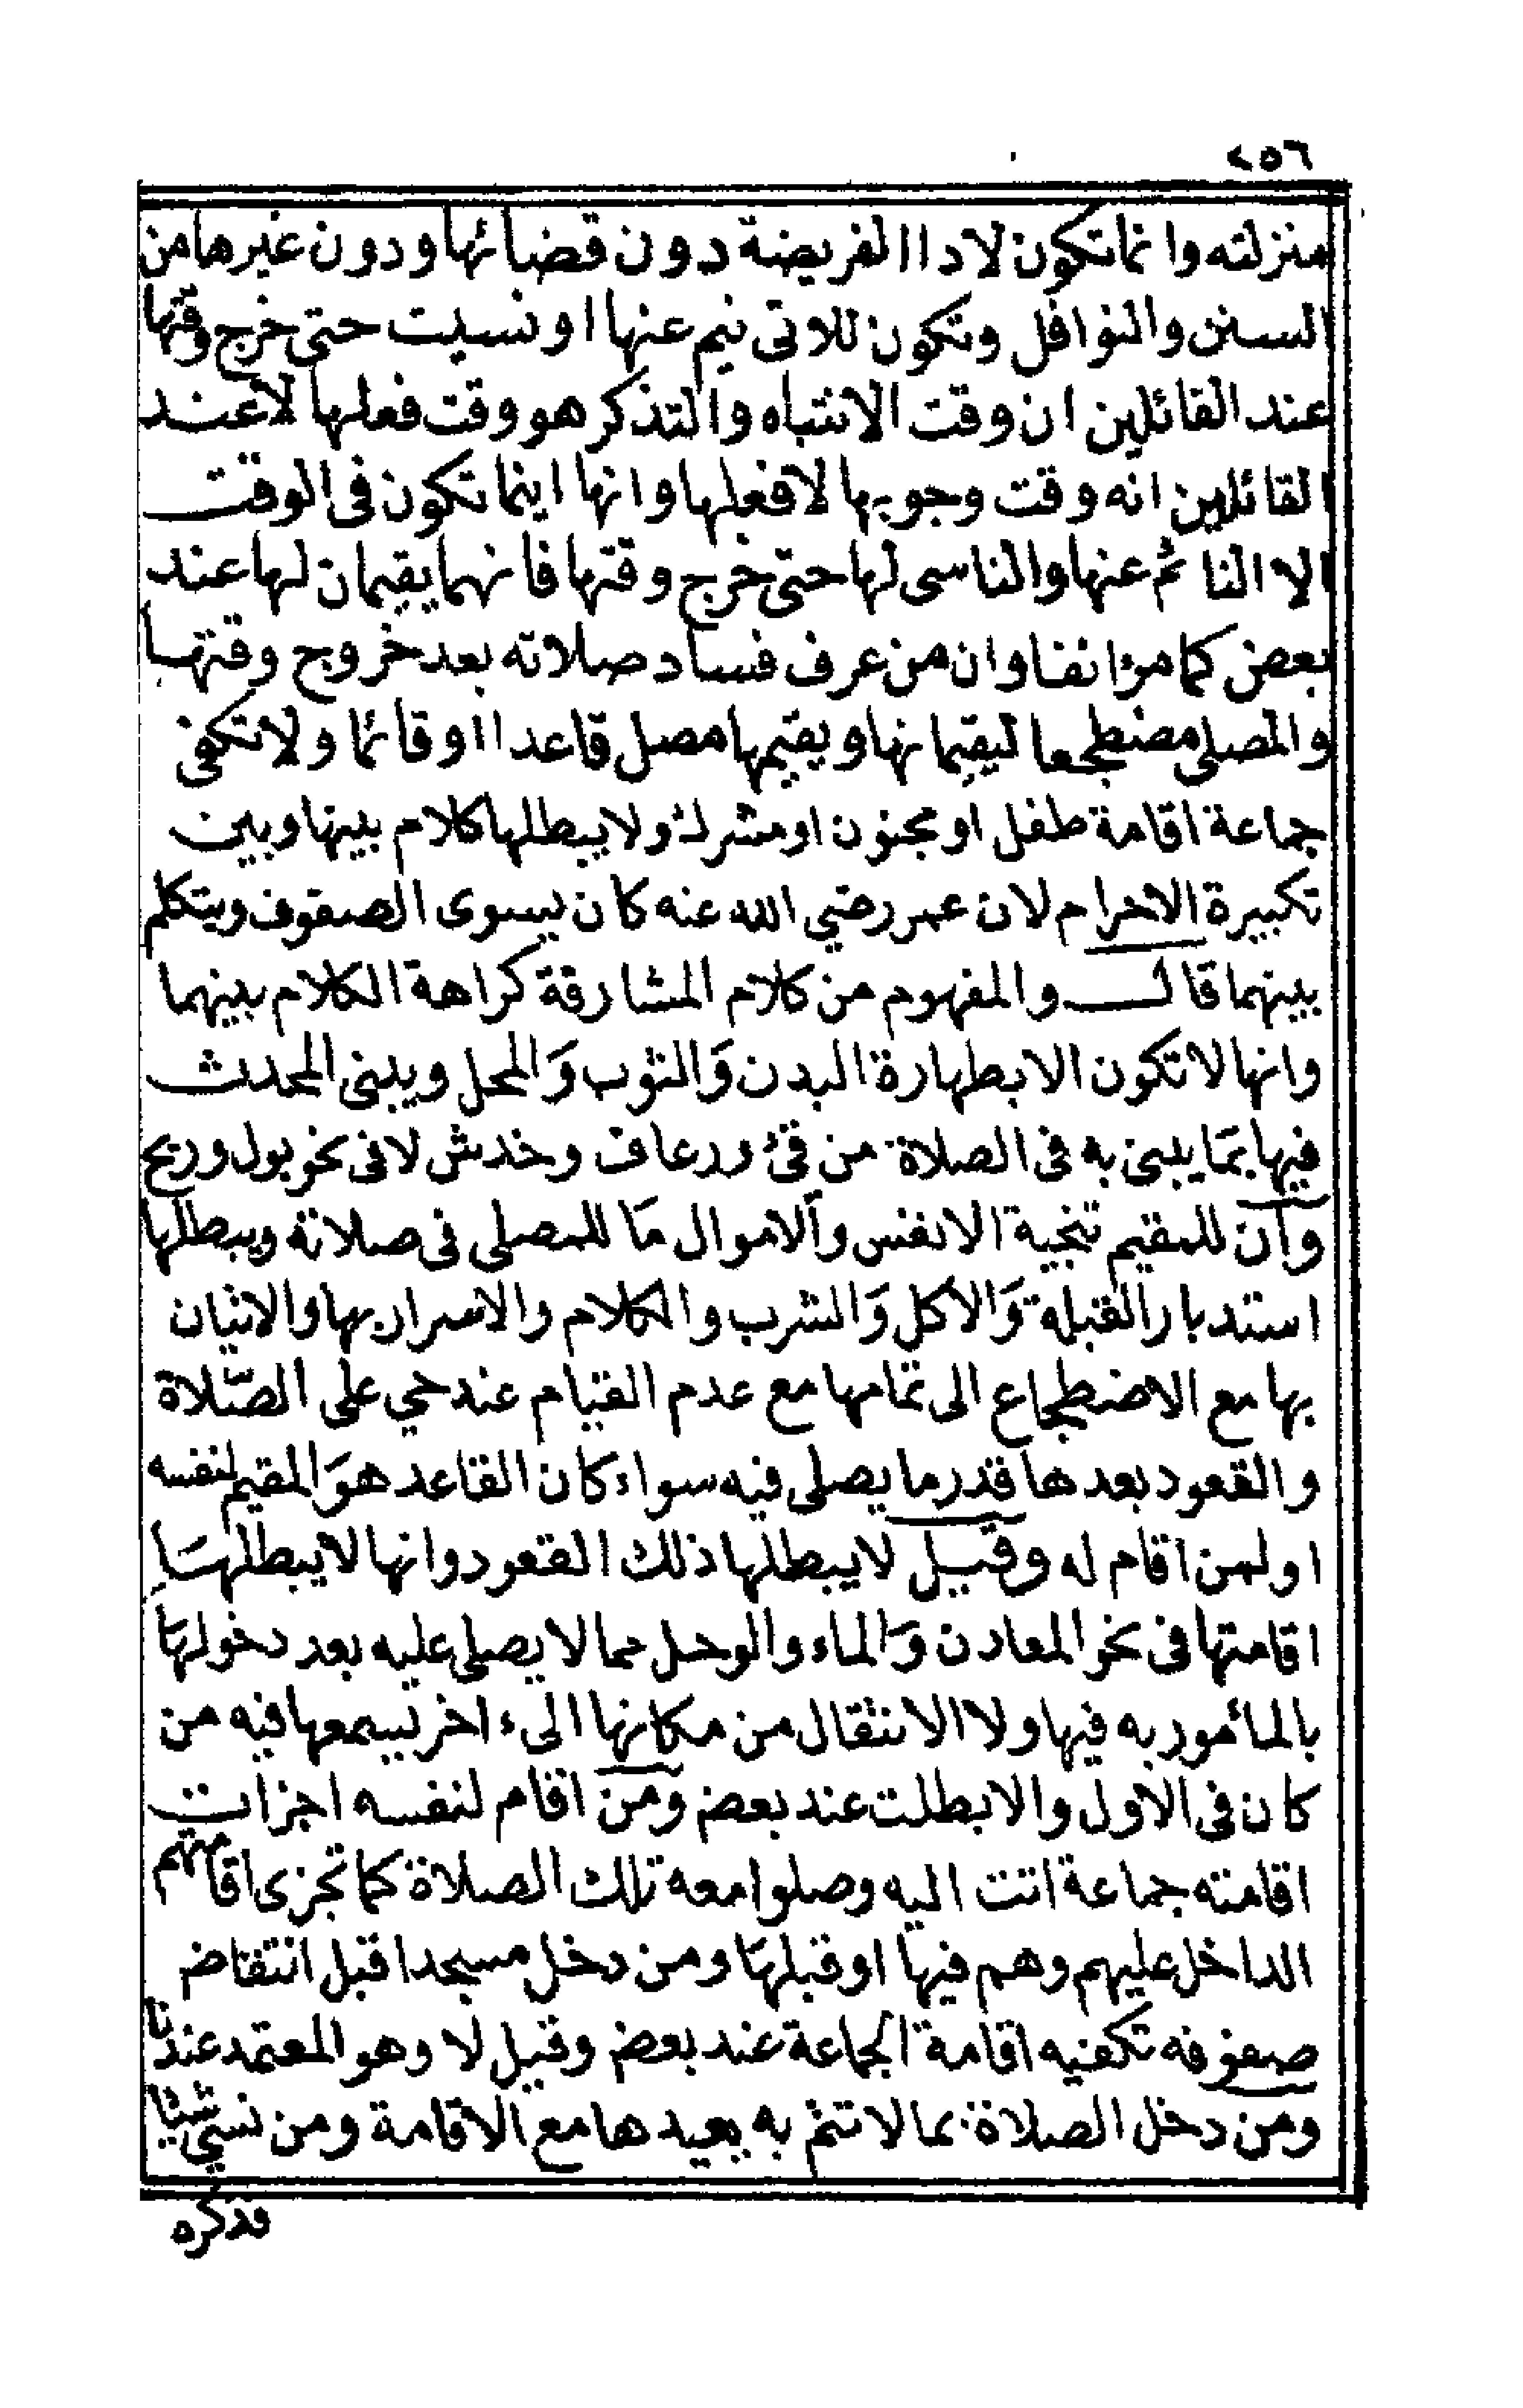 ٢٥٦
منزلته وانما تكون لادا الفريضة دون قضائها ودون غيرها من
السنن والنوافل وتكون للاتى نيم عنها او نسيت حتى خرج وقتها
عند القائلين ان وقت الانتباه والتذكر هو وقت فعلها لا عند
القائلين انه وقت وجوبها لا فعلها وانها اينما تكون فى الوقت
الا النائم عنها والناسى لها حتى خرج وقتها فانهما يقيمان لها عند
بعض كما مر انفا وان من عرف فساد صلاته بعد خروج وقتها
والمصلى مضطجعا ليقيمانها ويقيمها مصل قاعدا او قائما ولا تكفى
جماعة اقامة طفل او مجنون او مشرك ولا يبطلها كلام بينها وبين
تكبيرة الاحرام لان عمر رضي الله عنه كان يسوى الصفوف ويتكلم
بينهما قال والمفهوم من كلام المشارقة كراهة الكلام بينهما
وانها لا تكون الا بطهارة البدن وَالثوب وَالمحل ويبنى المحدث
فيها بمَا يبنى به فى الصلاة من قئ ورعاف وخدش لا فى نحو بول وريح
وان للمقيم تنجية الانفس والاموال مَا للمصلى فى صلاته ويبطلها
استدبار القبلة وَالاكل وَالشرب والكلام والاسرار بها والاتيان
بها مع الاضطجاع الى تمامها مع عدم القيام عند حي على الصّلاة
والقعود بعدها قدر ما يصلى فيه سواء كان القاعد هوَ المقيم لنفسه
او لمن اقام له وقيل لا يبطلها ذلك القعود وانها لا يبطلهَا
اقامتها فى نحو المعادن وَالماء والوحل مما لا يصلى عليه بعد دخولهَا
بالمأمور به فيها ولا الانتقال من مكانها الىء اخر يسمعها فيه من
كان فى الاول والا بطلت عند بعض ومن اقام لنفسه اجزات
اقامته جماعة اتت اليه وصلوا معه تلك الصلاة كما تجزى اقامتهم
الداخل عليهم وهم فيها او قبلهَا ومن دخل مسجدا قبل انتقاض
صفوفه تكفيه اقامة الجماعة عند بعض وقيل لا وهو المعتمد عندنا
ومن دخل الصلاة بما لا تتم به يعيدها مع الاقامة ومن نسي شيئا
فذكره